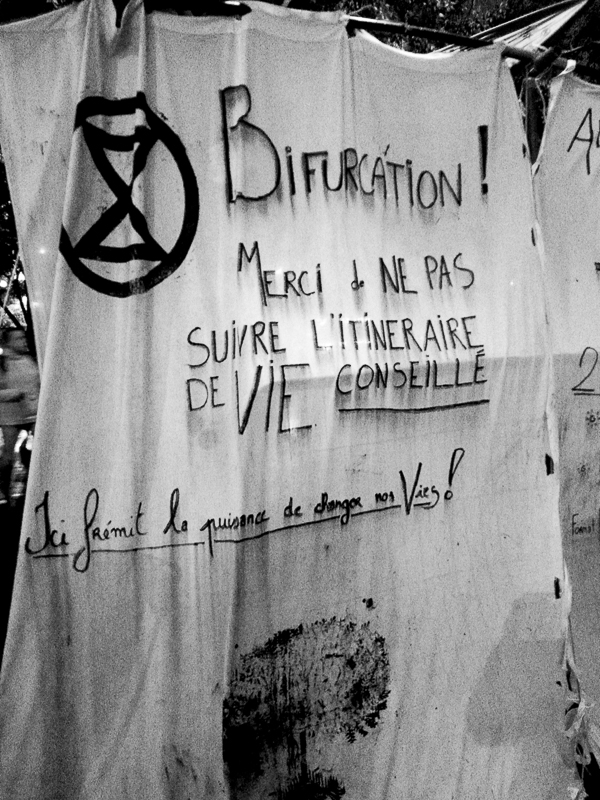 BIFURCATION !
MERCI de NE PAS
SUIVRE L'ITINERAIRE
DE VIE CONSEILLÉ
Ici frémit la puissance de changer nos Vies !
A
2